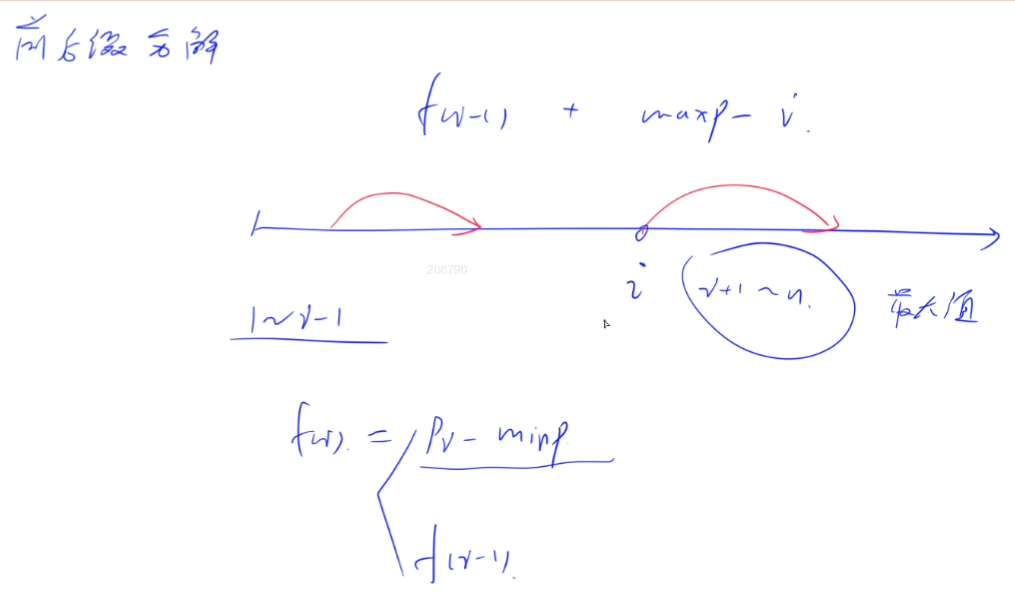 前后缀分解
f(i-1) + maxp - i
208790
i
i+1 ~ n
最大值
1 ~ i-1
f(i) = Pi - minp
f(i-1)